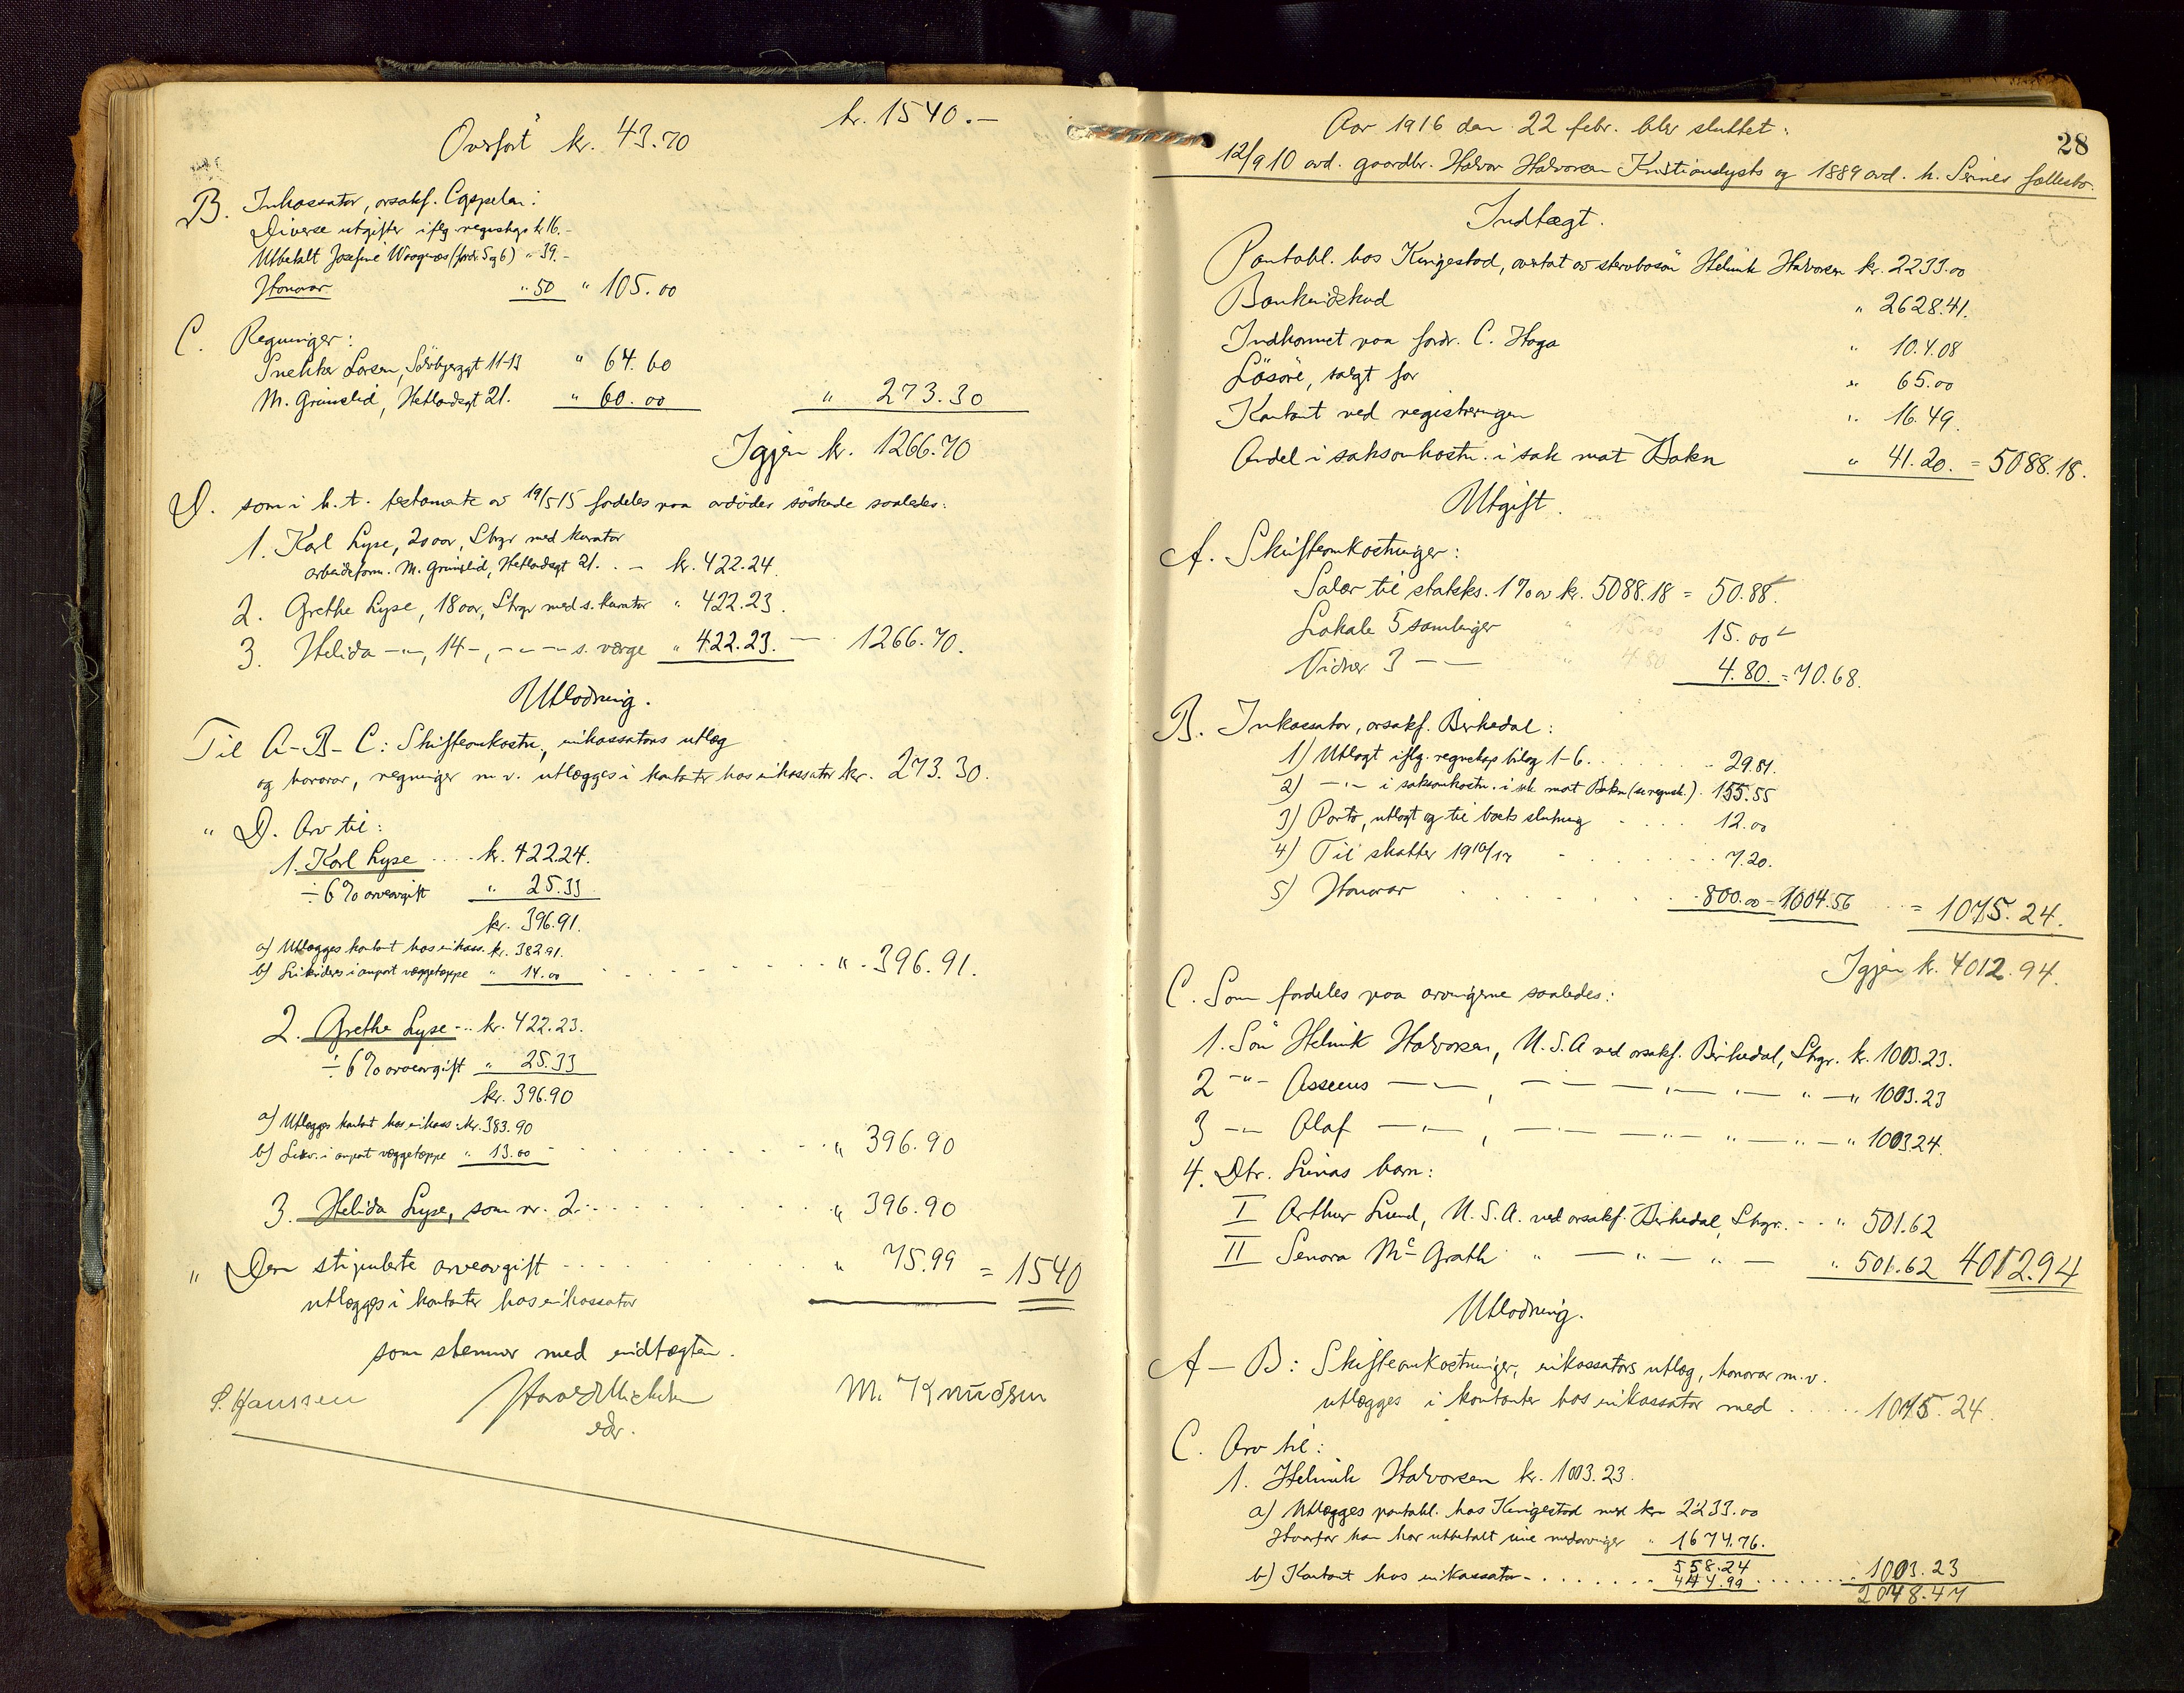 Overført kr. 43.70 kr. 1540.-
B. Inkassator, orsakf. Cappelen:
Diverse utgifter iflg. regnskap kr 16.-
Utbetalt Josefine Waagnæs (fordr. 5 og 6) " 39.-
Honorar " 50 " 105.00
C. Regninger:
Snekker Larsen, 11-13 " 64.60
M. Grimslid, Hetlandsgt 21. " 60.00 " 273.30
Igjen kr. 1266.70
D. som i h.t. testamente av 19/5 15 fordeles paa avdødes søskende saaledes:
1. Karl Lyse, 20 aar, Stvgr med kurator
arbeideform. M. Grimslid, Hetlandsgt 21. . - kr. 422.24.
2. Grethe Lyse, 18 aar, Stvgr med s. kurator " 422.23.
3. Helida -"-, 14 -, -"- - s. værge " 422.23. - 1266.70.
Utlodning.
Til A-B-C: Skifteomkostn., inkassators utlæg
og honorar, regninger m.v. utlægges i kontanter hos inkassator kr. 273.30.
" D. Arv til:
1. Karl Lyse .... kr. 422.24.
÷ 6% arveavgift " 25.33
kr. 396.91.
a) Utlægges kontant hos inkass. kr. 382.91.
b) Likvideres i anport væggetæppe " 14.00 . . . . . . . . " . 396.91.
2. Grethe Lyse -.. kr. 422.23.
÷ 6% arveavgift " 25.33
kr. 396.90
a) Utlægges kontant hos inkass. kr. 383.90
b) Likv. i anport væggetæppe " 13.00 - . . . . . . . " 396.90
3. Helida Lyse, som nr. 2. . . . . . . . . " 396.90
" Den stipulerte arveavgift . . . . . . . . " 75.99 = 1540
utlægges i kontanter hos inkassator
som stemmer med indtægten.
S. Hanssen M. Knudsen
edr.
28
Aar 1916 den 22 febr. blev sluttet:
12/9 10 avd. gaardbr. Halvor Halvorsen Kristianslysts og 1889 avd. h. Serines fællesbo.
Indtægt.
Pantobl. hos Kingestad, overtat av stervbosøn Helmik Halvorsen kr. 2233.00
Bankindskud " 2628.41.
Indkommet paa fordr. C. Haga " 104.08
Løsøre, solgt for " 65.00
Kontant ved registreringen " 16.49.
Andel i saksomkostn. i sak mot Bokn " 41.20. = 5088.18.
Utgift.
A. Skifteomkostninger:
Salær til statsks. 1% av kr. 5088.18 = 50.88
Lokale 5 samlinger " 15.00
Vidner 3 -"- " 4.80. = 70.68.
B. Inkassator, orsakf. Birkedal:
1) Utlagt iflg. regnskap bilag 1-6. . . . . . . . 29.81.
2) -"- i saksomkostn. i sak mot Bokn (se regnsk.) . 155.55
3) Porto, utlagt og til boets slutning . . . . 12.00
4) Til skatter 1916/17 - . . . . . . . 7.20.
5) Honorar . . . . . . . . 800.00 = 1004.56 . . = 1075.24.
Igjen kr. 4012.94.
C. Som fordeles paa arvingerne saaledes:
1. Søn Helmik Halvorsen, U.S.A ved orsakf. Birkedal, Stvgr. kr. 1003.23.
2 -"- Asseus -"-, -"- - "- "- " -" 1003.23
3 -"- Olaf -"-, -"- -"- " - " - " 1003.24.
4. Dtr. Linas barn:
I Arthur Lund, U.S.A. ved orsakf. Birkedal, Stvgr. - . " 501.62
II Senora Mc Grath " - " - " - " 501.62 4012.94
Utlodning.
A - B: Skifteomkostninger, inkassators utlæg, honorar m.v.
utlægges i kontanter hos inkassator med . . . . 1075.24.
C. Arv til:
1. Helmik Halvorsen kr. 1003.23.
a) Utlægges pantobl. hos Kingestad med kr 2233.00
Hvorfor han har utbetalt sine medarvinger " 1674.76.
558.24
b) Kontant hos inkassator . . . . . . . 444.99 . . . . . . . 1003.23
2078.47